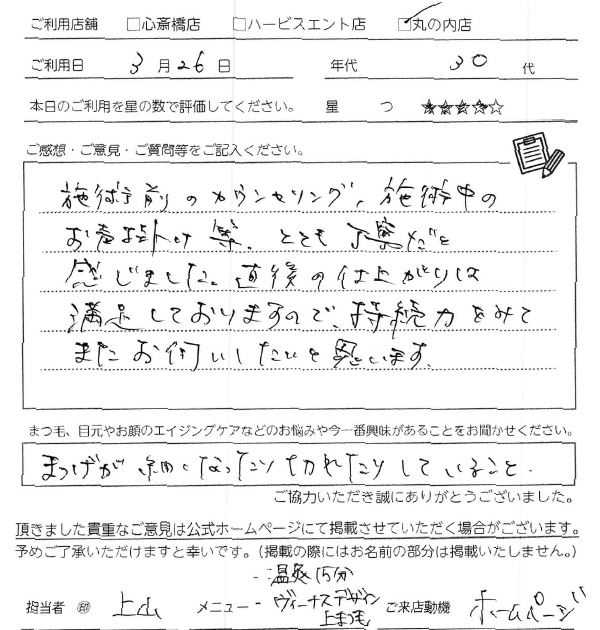 ご利用店舗 □心斎橋店 □ハービスエント店 ☑丸の内店
ご利用日 3月26日 年代 30代
本日のご利用を星の数で評価してください。 星 つ ★★★★☆
ご感想・ご意見・ご質問等をご記入ください。
施術前のカウンセリング、施術中の
お声掛け等、とても丁寧だと
感じました。直後の仕上がりは
満足しておりますので、持続力をみて
またお伺いしたいと思います。
まつ毛、目元やお顔のエイジングケアなどのお悩みや今一番興味があることをお聞かせください。
まつげが細くなったり切れたりしていること.
ご協力いただき誠にありがとうございました。
頂きました貴重なご意見は公式ホームページにて掲載させていただく場合がございます。
予めご了承いただけますと幸いです。(掲載の際にはお名前の部分は掲載いたしません。)
・温灸15分
担当者 ㊞ 上山 メニュー・ヴィーナスデザイン ご来店動機 ホームページ
上まつ毛